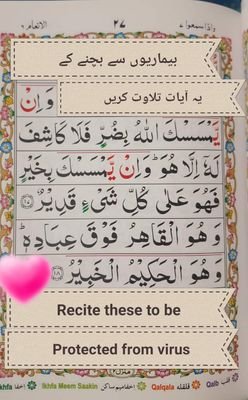 واذا سمعوا ٧ ٢٧ الانعام ٦
بیماریوں سے بچنے کے
وَ اِنْ
یہ آیات تلاوت کریں
يَّمْسَسْكَ اللّٰهُ بِضُرٍّ فَلَا كَاشِفَ
لَهٗۤ اِلَّا هُوَ ؕ وَ اِنْ يَّمْسَسْكَ بِخَيْرٍ
فَهُوَ عَلٰى كُلِّ شَيْءٍ قَدِيْرٌ ﴿۱۷﴾
وَ هُوَ الْقَاهِرُ فَوْقَ عِبَادِهٖ ؕ
وَ هُوَ الْحَكِيْمُ الْخَبِيْرُ ﴿۱۸﴾
Recite these to be
Protected from virus
khfa Ikhfa Meem Saakin اخفا میم ساکن Qalqala قلقله Qalb قلب